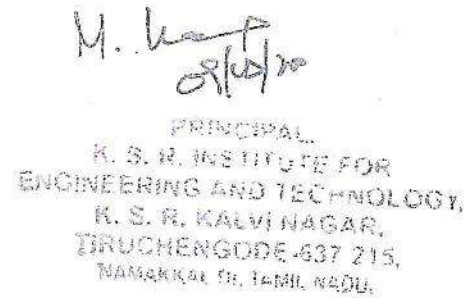 M.
PRINCIPAL
K. S. R. INSTITUTE FOR
ENGINEERING AND TECHNOLOGY,
K. S. R. KALVI NAGAR,
TIRUCHENGODE-637 215,
NAMAKKAL Dt, TAMIL NADU.